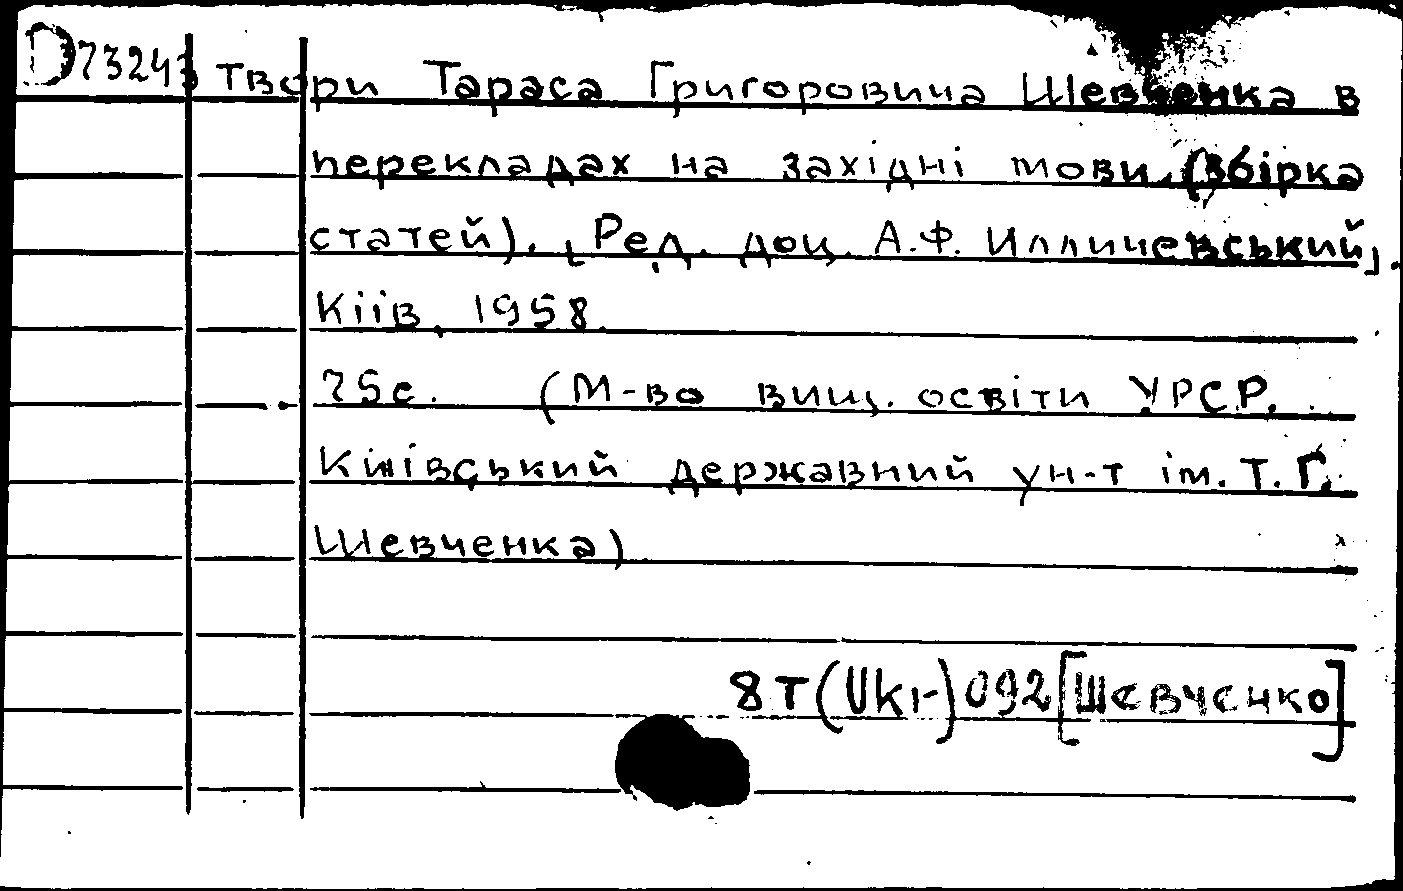 D73243 Твори Тараса Григоровича Шевченка в
перекладах на західні мови. (Збірка
статей). [Ред. доц. А.Ф. Илличевський].
Кіів, 1958.
75с. (М-во вищ. освіти УРСР.
Київський державний ун-т ім. Т.Г.
Шевченка)
8Т(Ukr)092[Шевченко]